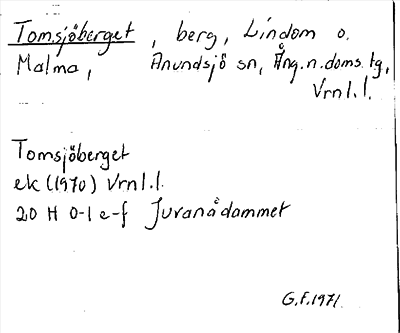 Tomsjöberget, berg, Lindom o.
Malma, Anundsjö sn, Ång.n.doms.tg,
Vrnl.l.
Tomsjöberget
ek (1970) Vrnl.l.
20 H 0-1 e-f Juranådammet
G.F.1971.